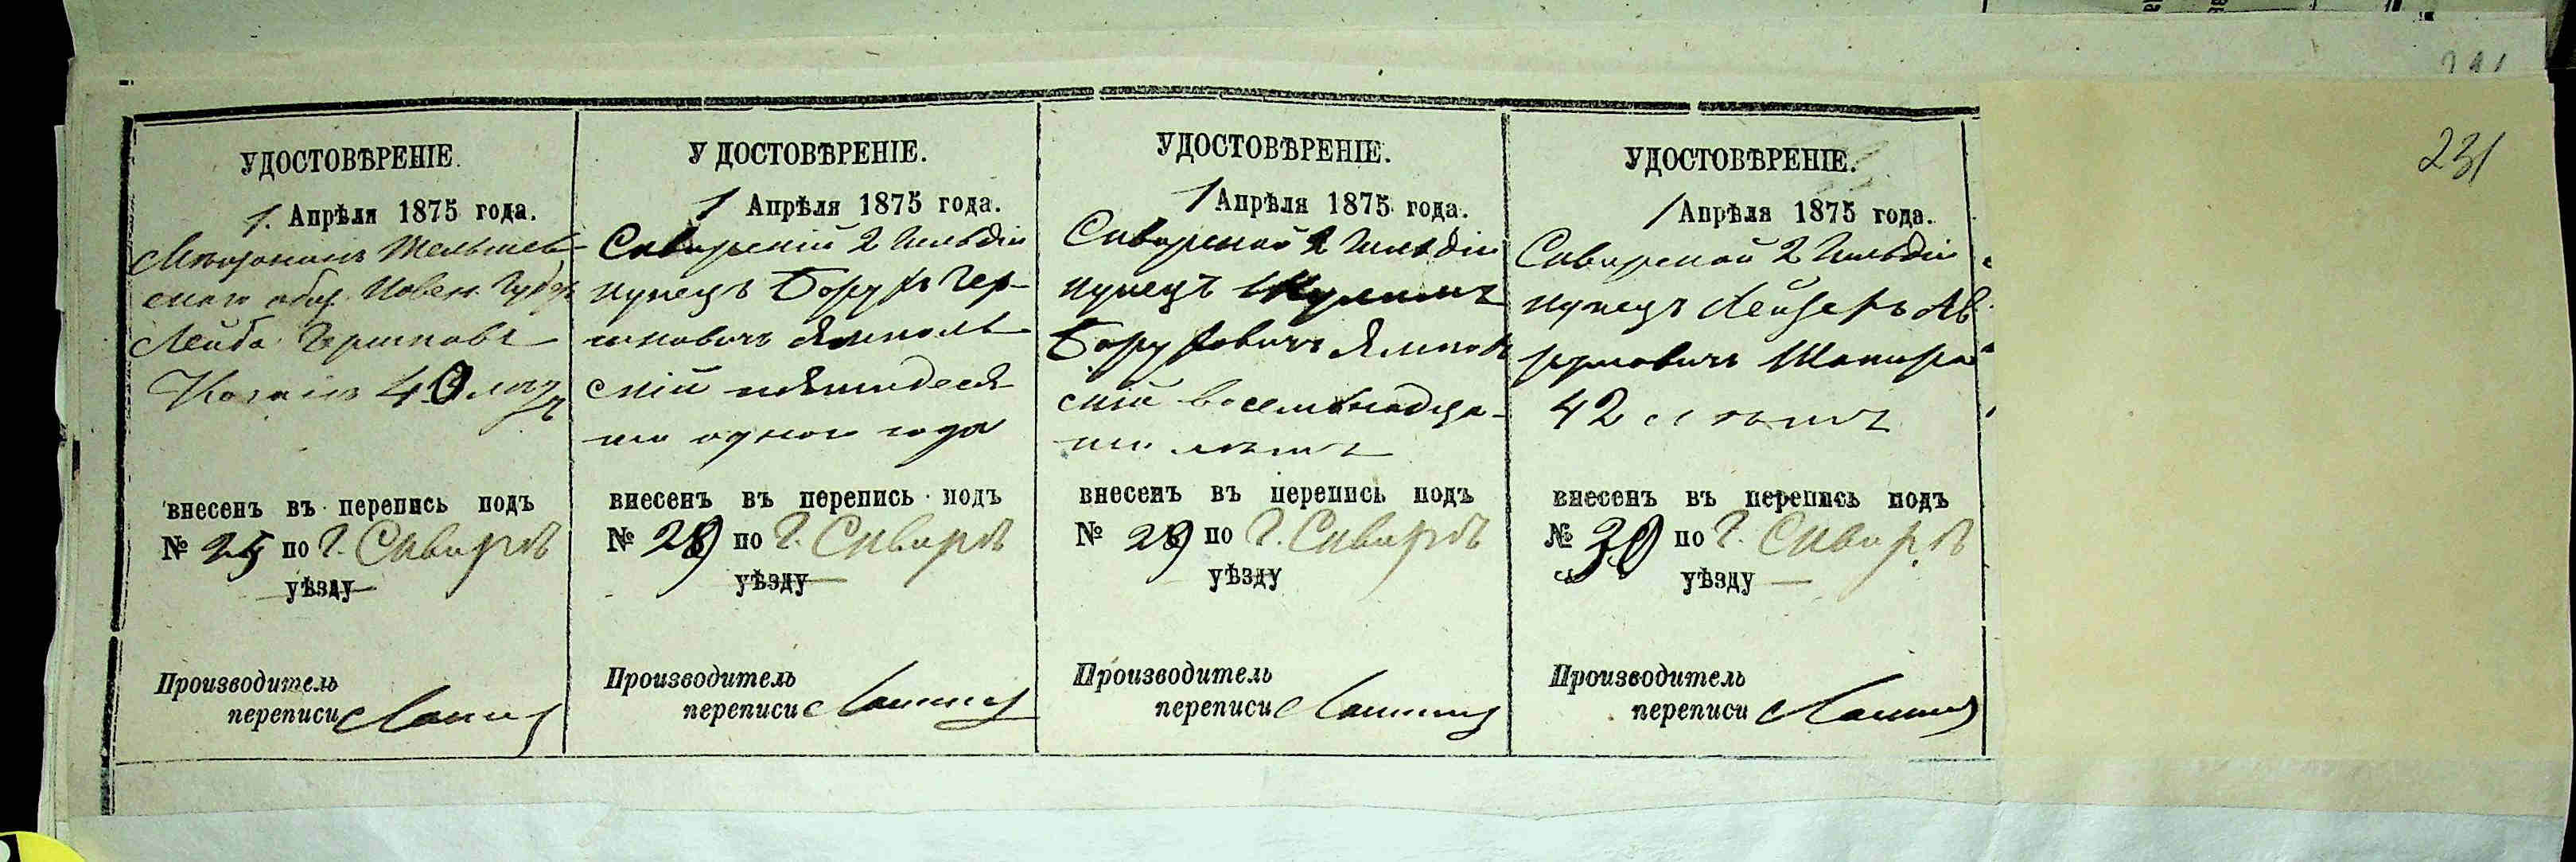 231
УДОСТОВѢРЕНІЕ.
1. Апрѣля 1875 года.
Мѣщанинъ
скаго общ. Ковен. Губер.
Лейба Гершковъ
40 лѣтъ
внесенъ въ перепись подъ
№ 25 по г. Сквирѣ
уѣзду
Производитель
переписи
УДОСТОВѢРЕНІЕ.
1 Апрѣля 1875 года.
Сквирскій 2 Гильдіи
купецъ Борухъ Гер-
шковичъ Ямполь
скій пятьдеся
ти одного года
внесенъ въ перепись подъ
№ 28 по г. Сквирѣ
уѣзду
Производитель
переписи
УДОСТОВѢРЕНІЕ.
1 Апрѣля 1875 года.
Сквирской 2 Гильдіи
купецъ
Боруховичъ Ямполь
скій восемьнадца-
ти лѣтъ
внесенъ въ перепись подъ
№ 29 по г. Сквирѣ
уѣзду
Производитель
переписи
УДОСТОВѢРЕНІЕ.
1 Апрѣля 1875 года.
Сквирской 2 Гильдіи
купецъ Лейзеръ Ав
румовичъ Шапиро
42 лѣтъ
внесенъ въ перепись подъ
№ 30 по г. Сквирѣ
уѣзду
Производитель
переписи